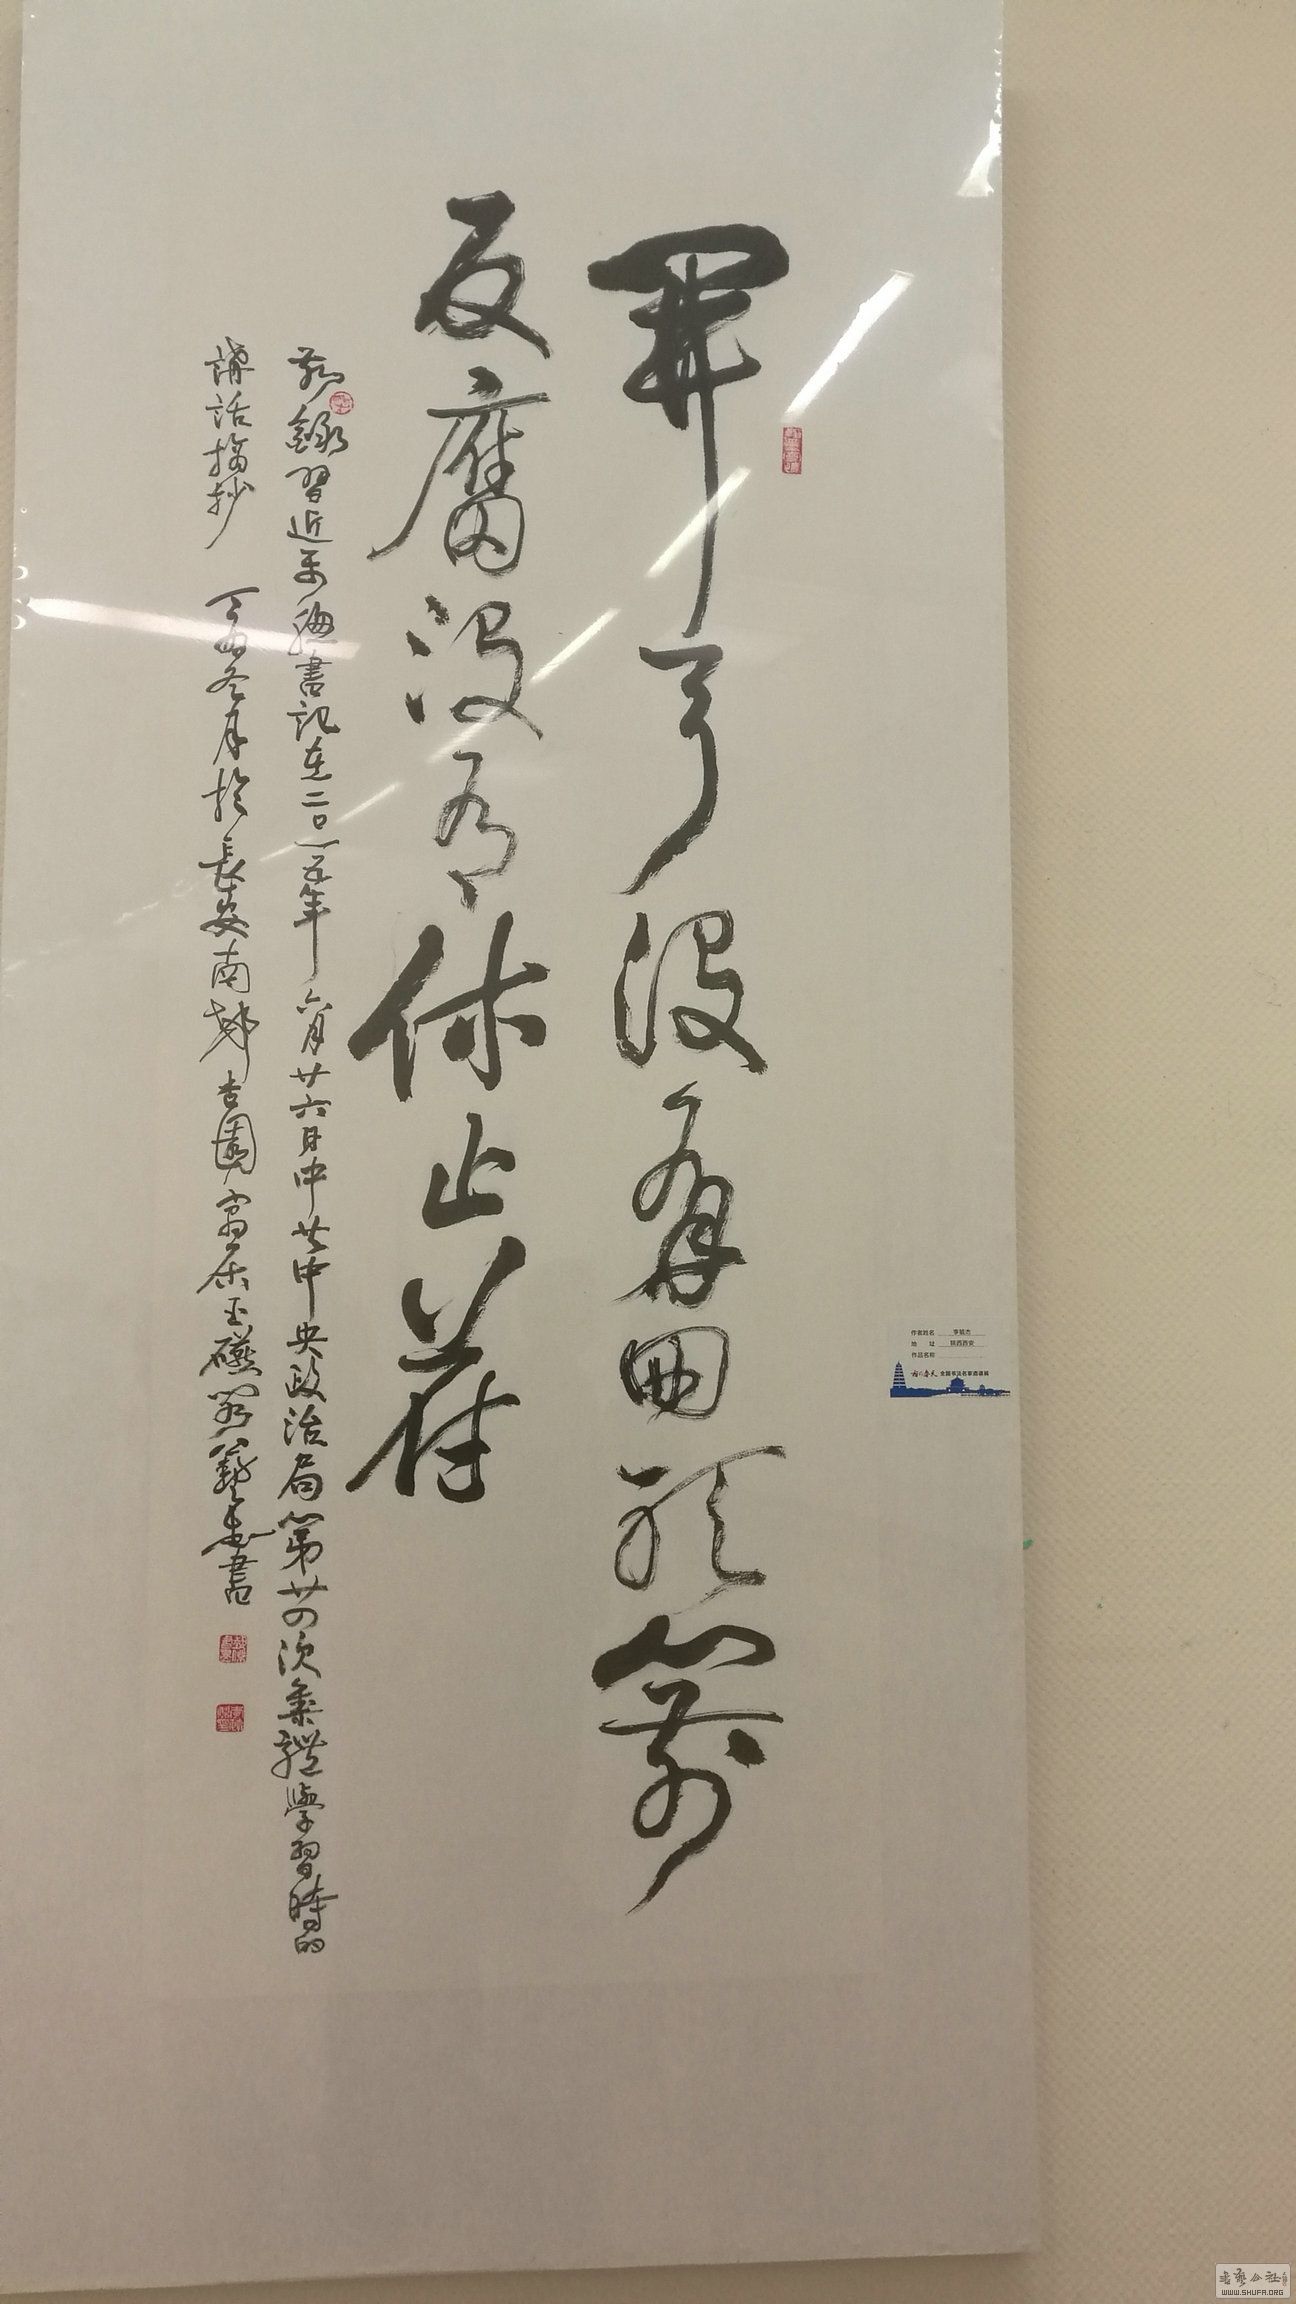 開弓没有回頭箭
反腐没有休止符
敬錄習近平總書記在二〇一五年六月廿六日中共中央政治局第廿四次集體學習時的
講話摘抄 丁酉冬月於長安南郊杏園寓居玉礎閣 書
作者姓名 李毓杰
地 址 陕西西安
作品名称
全国书法名家邀请展
书艺公社
WWW.SHUFA.ORG